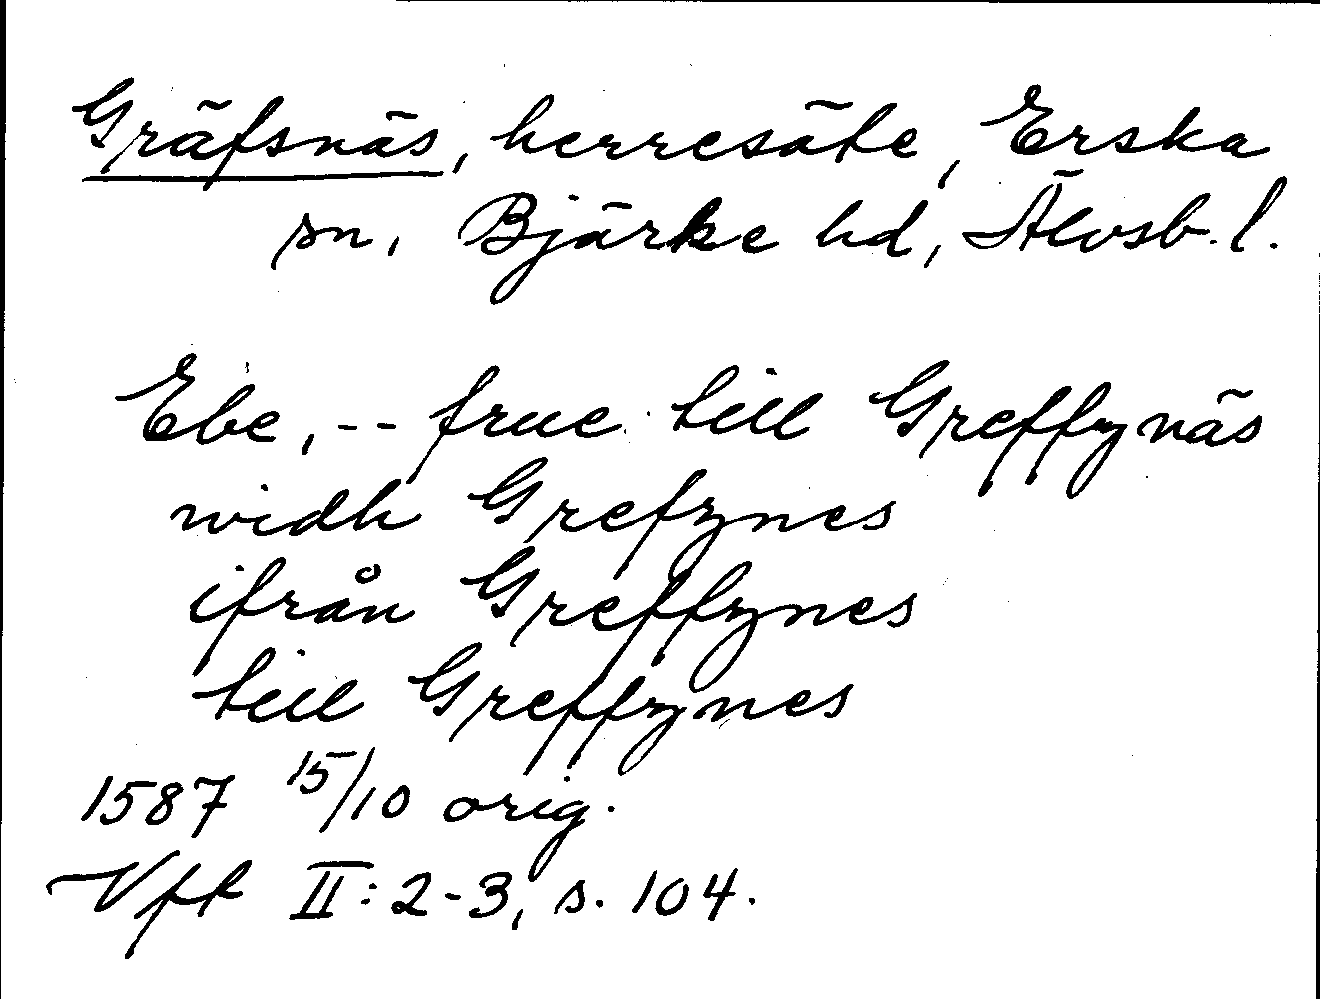 Gräfsnäs, herresäte, Erska
sn, Bjärke hd, Älvsb. l.
Ebe, -- frue till Greffznäs
widh Grefznes
ifrån Greffznes
till Greffznes
1587 15/10 orig.
Vft II: 2-3, s. 104.